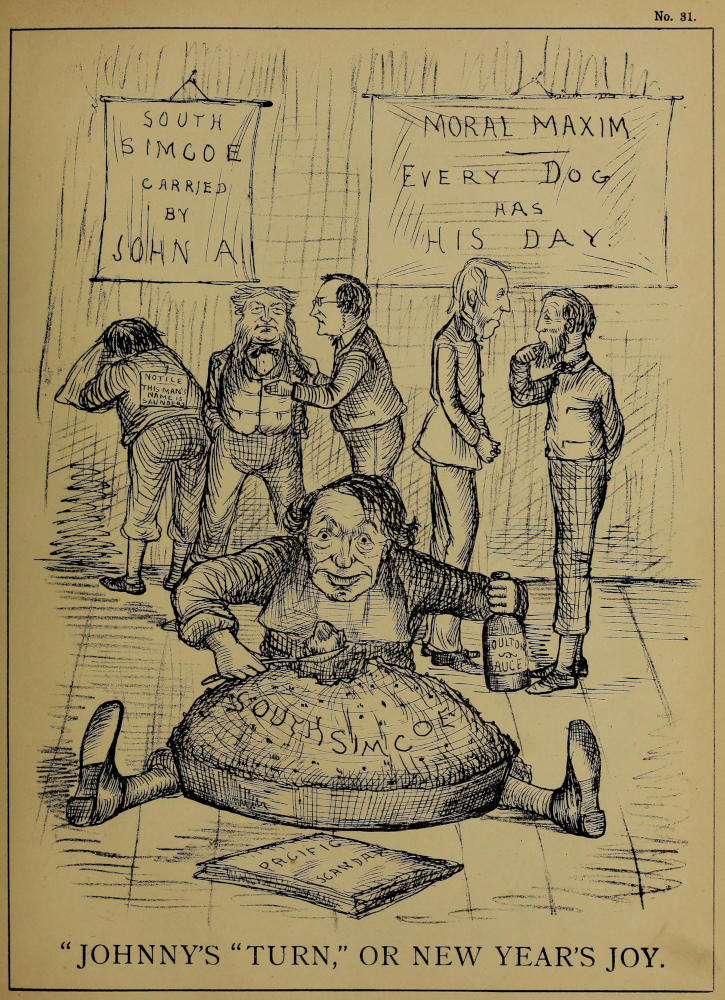 No. 31.
SOUTH
SIMCOE
CARRIED
BY
JOHN A
MORAL MAXIM
EVERY DOG
HAS
HIS DAY.
NOTICE
THIS MAN'S
NAME IS
SOUTH SIMCOE
PACIFIC
SCANDAL
"JOHNNY'S "TURN," OR NEW YEAR'S JOY.